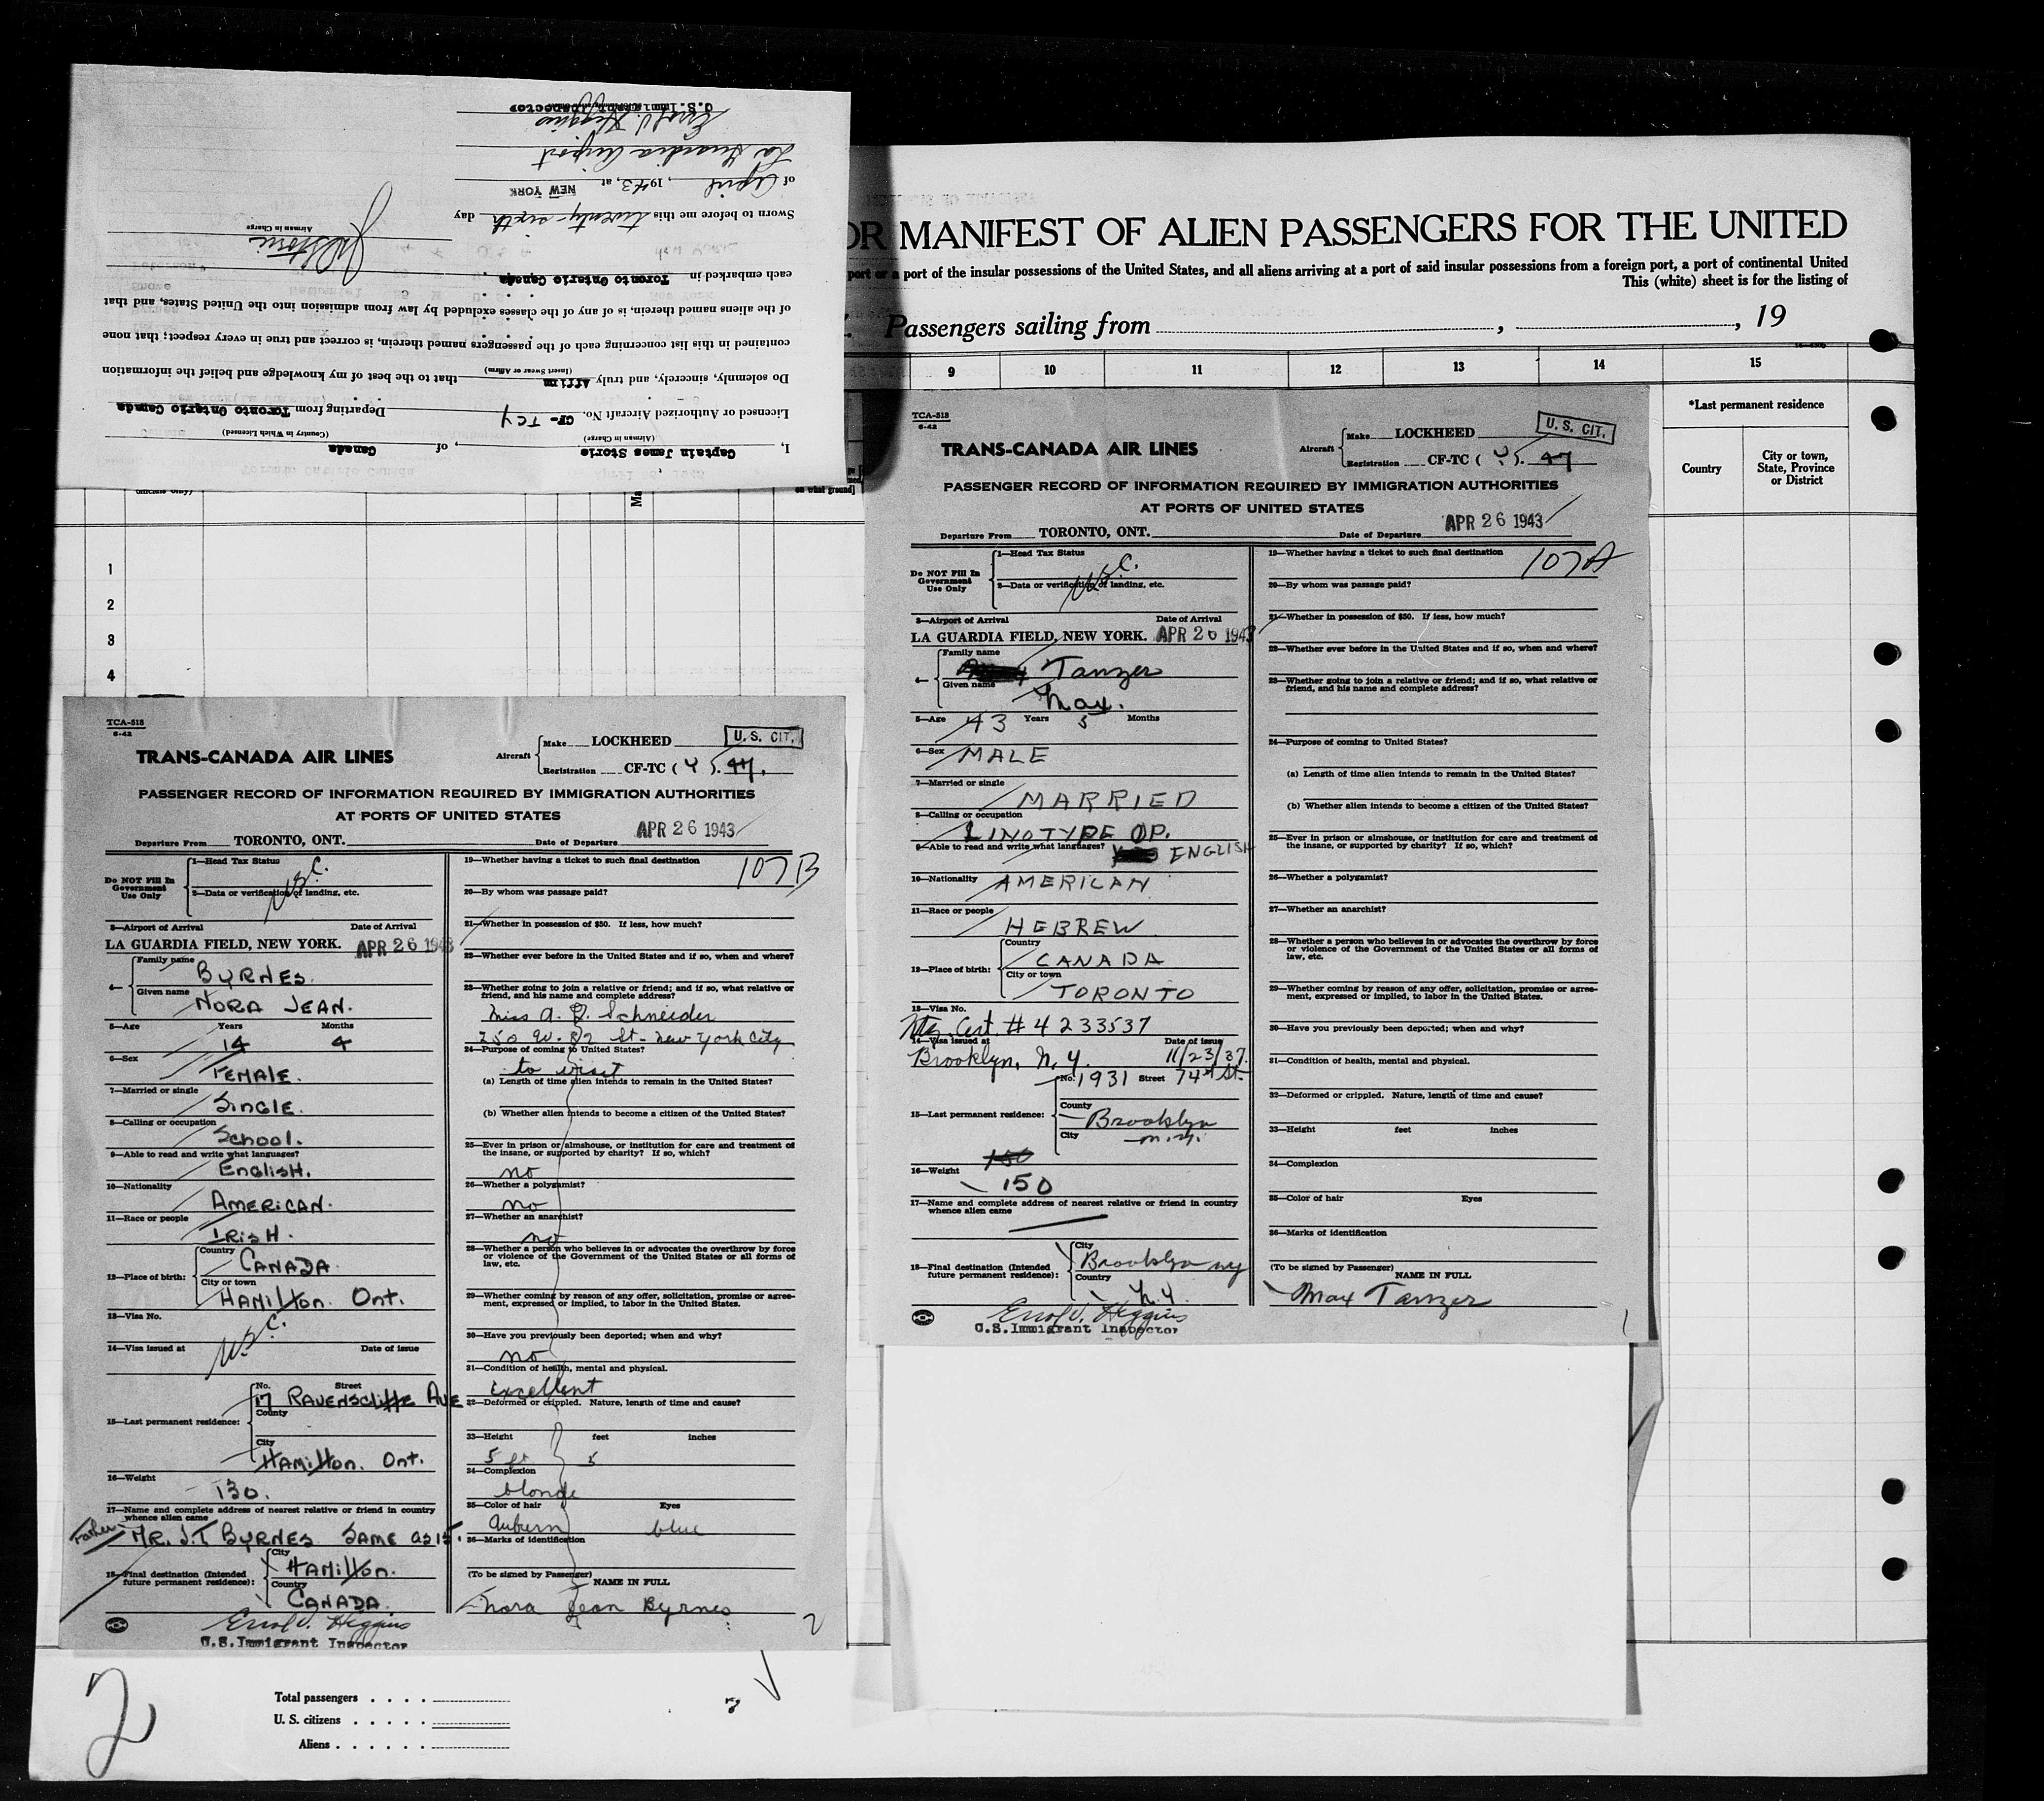 I, Captain James Storie, of Canada
(Airman in Charge) (Country in Which Licensed)
Licensed or Authorized Aircraft No. CF-TCY Departing from Toronto Ontario Canada
Do solemnly, sincerely, and truly Affirm that to the best of my knowledge and belief the information
(Insert Swear or Affirm)
contained in this list concerning each of the passengers named therein, is correct and true in every respect; that none
of the aliens named therein, is of any of the classes excluded by law from admission into the United States, and that
each embarked in Toronto Ontario Canada.
Airman in Charge
Sworn to before me this twenty-sixth day
of April, 1943, at NEW YORK
La Guardia Airport
Errol V. Higgins
U.S. Immigrant Inspector
OR MANIFEST OF ALIEN PASSENGERS FOR THE UNITED
port or a port of the insular possessions of the United States, and all aliens arriving at a port of said insular possessions from a foreign port, a port of continental United
This (white) sheet is for the listing of
Passengers sailing from , , 19
9 10 11 12 13 14 15
*Last permanent residence
Country City or town, State, Province or District
officials only)
Ma
on what ground]
1
2
3
4
TCA-518
6-42
TRANS-CANADA AIR LINES
Aircraft Make LOCKHEED U. S. CIT.
Registration CF-TC (Y). 47.
PASSENGER RECORD OF INFORMATION REQUIRED BY IMMIGRATION AUTHORITIES
AT PORTS OF UNITED STATES
Departure From TORONTO, ONT. Date of Departure APR 26 1943
Do NOT Fill In Government Use Only
1—Head Tax Status
USC.
2—Data or verification of landing, etc.
3—Airport of Arrival Date of Arrival
LA GUARDIA FIELD, NEW YORK. APR 26 1943
4— Family name BYRNES.
Given name NORA JEAN.
5—Age Years 14 Months 4
6—Sex FEMALE.
7—Married or single SINGLE.
8—Calling or occupation School.
9—Able to read and write what languages? ENGLISH.
10—Nationality AMERICAN.
11—Race or people IRISH.
12—Place of birth: Country CANADA.
City or town HAMILTON. Ont.
13—Visa No.
USC.
14—Visa issued at Date of issue
15—Last permanent residence: No. Street 17 RAVENSCLIFFE AVE
County
City HAMILTON. Ont.
16—Weight 130.
17—Name and complete address of nearest relative or friend in country whence alien came
Father MR. J.T. BYRNES SAME AS 15.
18—Final destination (Intended future permanent residence): City HAMILTON.
Country CANADA.
Errol V. Higgins
U.S. Immigrant Inspector
19—Whether having a ticket to such final destination 107B
20—By whom was passage paid?
21—Whether in possession of $50. If less, how much?
22—Whether ever before in the United States and if so, when and where?
23—Whether going to join a relative or friend; and if so, what relative or friend, and his name and complete address?
Miss A. Schneider
250 W. 82 St. New York City
24—Purpose of coming to United States?
to visit
(a) Length of time alien intends to remain in the United States?
(b) Whether alien intends to become a citizen of the United States?
25—Ever in prison or almshouse, or institution for care and treatment of the insane, or supported by charity? If so, which?
no
26—Whether a polygamist?
no
27—Whether an anarchist?
no
28—Whether a person who believes in or advocates the overthrow by force or violence of the Government of the United States or all forms of law, etc.
29—Whether coming by reason of any offer, solicitation, promise or agreement, expressed or implied, to labor in the United States.
30—Have you previously been deported; when and why?
no
31—Condition of health, mental and physical.
Excellent
32—Deformed or crippled. Nature, length of time and cause?
33—Height feet inches
5 ft 5
34—Complexion
blonde
35—Color of hair Eyes
Auburn blue
36—Marks of identification
(To be signed by Passenger) NAME IN FULL
Nora Jean Byrnes
2
TCA-518
6-42
TRANS-CANADA AIR LINES
Aircraft Make LOCKHEED U. S. CIT.
Registration CF-TC (Y). 47
PASSENGER RECORD OF INFORMATION REQUIRED BY IMMIGRATION AUTHORITIES
AT PORTS OF UNITED STATES
Departure From TORONTO, ONT. Date of Departure APR 26 1943
Do NOT Fill In Government Use Only
1—Head Tax Status
USC.
2—Data or verification of landing, etc.
3—Airport of Arrival Date of Arrival
LA GUARDIA FIELD, NEW YORK. APR 26 1943
4— Family name Tanzer
Given name Max.
5—Age 43 Years 5 Months
6—Sex MALE
7—Married or single MARRIED
8—Calling or occupation LINOTYPE OP.
9—Able to read and write what languages? ENGLISH
10—Nationality AMERICAN
11—Race or people HEBREW
12—Place of birth: Country CANADA
City or town TORONTO
13—Visa No.
Ntz. Cert. # 4233537
14—Visa issued at Date of issue
Brooklyn, N.Y. 11/23/37.
15—Last permanent residence: No. 1931 Street 74th St.
County Brooklyn
City N.Y.
150
16—Weight 150
17—Name and complete address of nearest relative or friend in country whence alien came
18—Final destination (Intended future permanent residence): City Brooklyn NY
Country N.Y.
Errol V. Higgins
U.S. Immigrant Inspector
19—Whether having a ticket to such final destination 107A
20—By whom was passage paid?
21—Whether in possession of $50. If less, how much?
22—Whether ever before in the United States and if so, when and where?
23—Whether going to join a relative or friend; and if so, what relative or friend, and his name and complete address?
24—Purpose of coming to United States?
(a) Length of time alien intends to remain in the United States?
(b) Whether alien intends to become a citizen of the United States?
25—Ever in prison or almshouse, or institution for care and treatment of the insane, or supported by charity? If so, which?
26—Whether a polygamist?
27—Whether an anarchist?
28—Whether a person who believes in or advocates the overthrow by force or violence of the Government of the United States or all forms of law, etc.
29—Whether coming by reason of any offer, solicitation, promise or agreement, expressed or implied, to labor in the United States.
30—Have you previously been deported; when and why?
31—Condition of health, mental and physical.
32—Deformed or crippled. Nature, length of time and cause?
33—Height feet inches
34—Complexion
35—Color of hair Eyes
36—Marks of identification
(To be signed by Passenger) NAME IN FULL
Max Tanzer
1
2
Total passengers . . . .
U. S. citizens . . . . .
Aliens . . . . . .